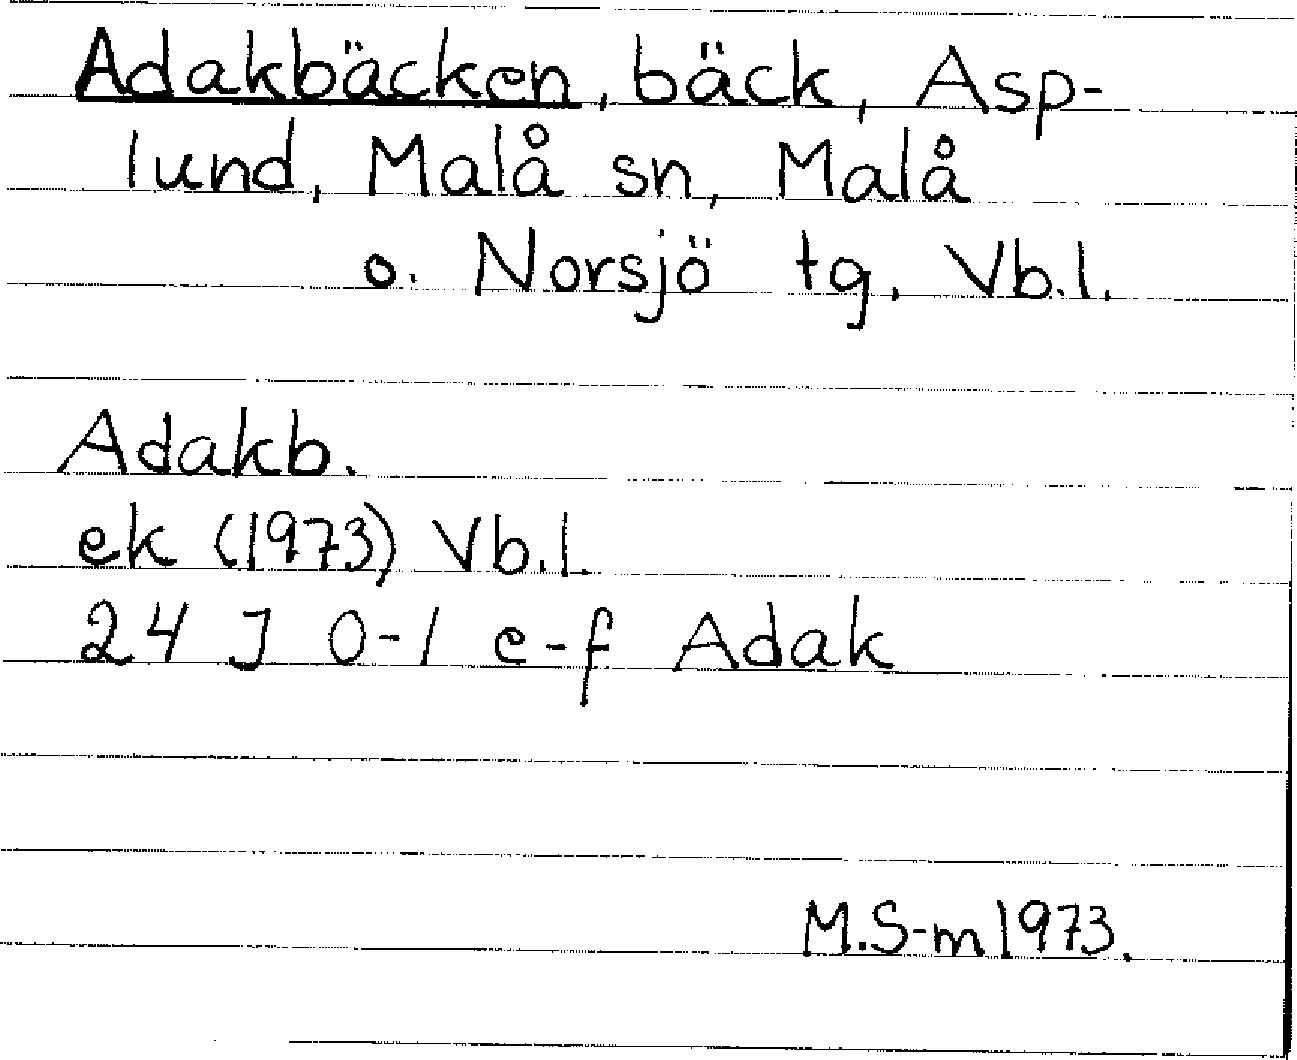 Adakbäcken, bäck, Asp-
lund, Malå sn, Malå
o. Norsjö tg, Vb.l.
Adakb.
ek (1973) Vb.l.
24 J 0-1 e-f Adak
M.S-m 1973.